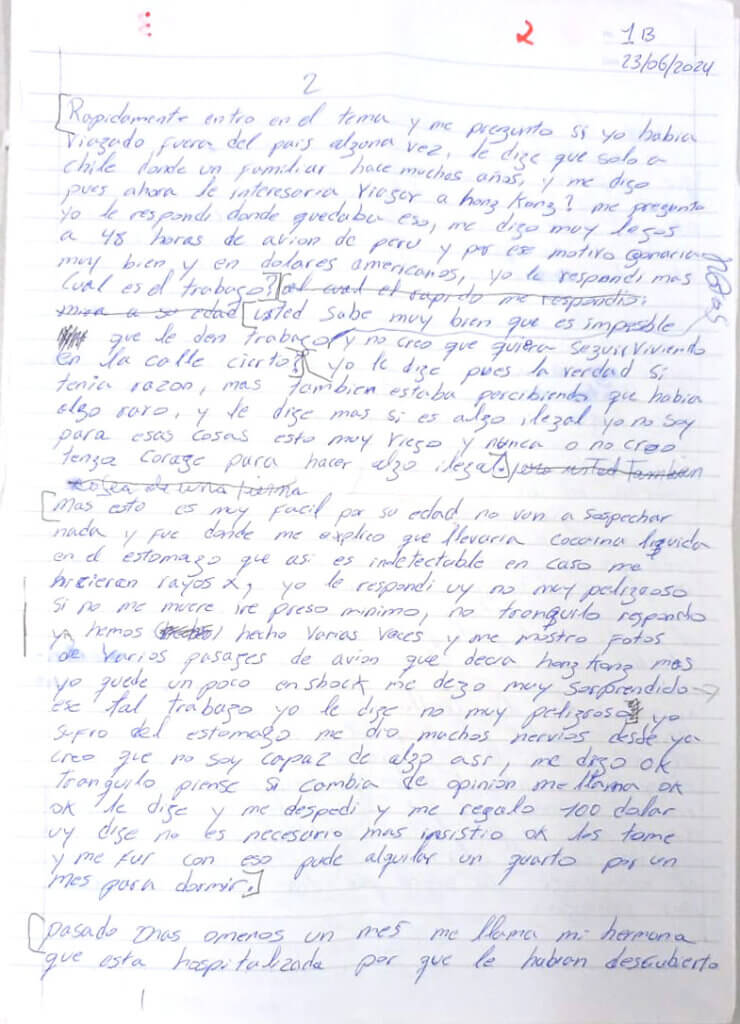 2
1B
23/06/2024
2
Rapidamente entro en el tema y me pregunto si yo habia
viazado fuera del pais alguna vez, le dize que solo a
chile donde un familiar hace muchos años, y me dizo
pues ahora le interesaria viazar a honz Konz? me pregunto
yo le respondi donde quedaba eso, me dizo muy lezos
a 48 horas de avion de peru y por ese motivo ganaria
muy bien y en dolares americanos, yo le respondi mas
Cual es el trabazo? al cual el rapido me respondio:
mira a su edad usted sabe muy bien que es imposible
que le den trabazo y no creo que quiera sezuir viviendo
en la calle cierto? yo le dize pues la verdad si
tenia razon, mas tambien estaba percibiendo que habia
algo raro, y le dize mas si es alzo ilezal yo no soy
para esas cosas esto muy viezo y nunca o no creo
tenza coraze para hacer alzo ilezal. pero usted tambien
de una pierna
mas esto es muy facil por su edad no van a sospechar
nada y fue donde me explico que llevaria cocaina liquida
en el estomazo que asi es indetectable en caso me
hicieran rayos x, yo le respondi uy no muy pelizroso
si no me muere ire preso minimo, no tranquilo respondio
ya hemos hecho varias vaces y me mostro fotos
de varios pasazes de avion que decia honz Konz mas
yo quede un poco en shock me dezo muy sorprendido
ese tal trabazo yo le dize no muy pelizroso yo
sufro del estomazo me dio muchos nervios desde ya
creo que no soy capaz de alzo asi, me dizo ok
tranquilo piense si cambia de opinion me llama ok
ok le dize y me despedi y me regalo 100 dolar
uy dize no es necesario mas insistio ok los tome
y me fui con eso pude alquilar un quarto por un
mes para dormir.
pasado mas omenos un mes me llama mi hermana
que esta hospitalizada por que le habian descubierto